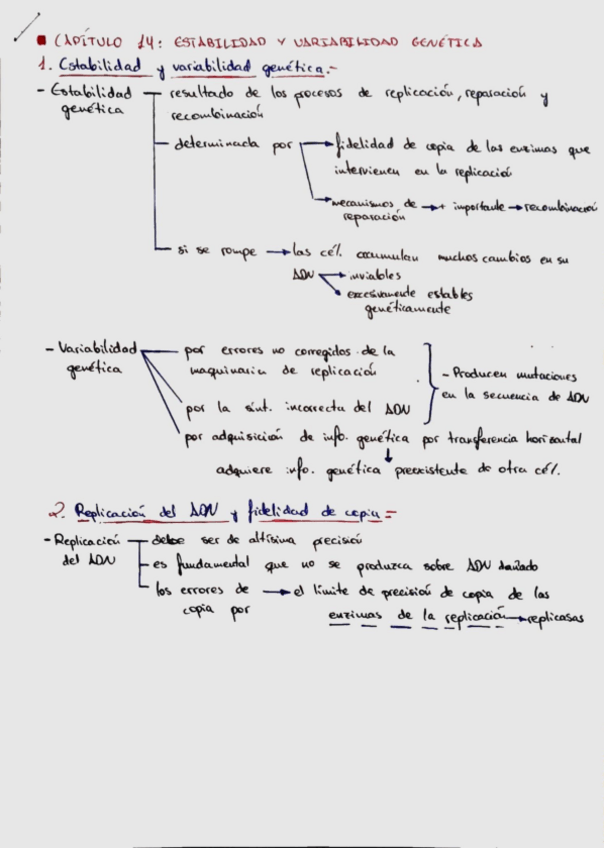 CAPÍTULO 14: ESTABILIDAD Y VARIABILIDAD GENÉTICA
1. Estabilidad y variabilidad genética.-
- Estabilidad genética
resultado de los procesos de replicación, reparación y
recombinación
determinada por → fidelidad de copia de las enzimas que
intervienen en la replicación
→ mecanismos de reparación → + importante → recombinación
si se rompe → las cél. acumulan muchos cambios en su
ADN → inviables
→ excesivamente estables
genéticamente
- Variabilidad genética
por errores no corregidos de la
maquinaria de replicación
por la sínt. incorrecta del ADN
- Producen mutaciones
en la secuencia de ADN
por adquisición de info. genética por transferencia horizontal
↓
adquiere info. genética preexistente de otra cél.
2. Replicación del ADN y fidelidad de copia=
- Replicación del ADN
debe ser de altísima precisión
es fundamental que no se produzca sobre ADN dañado
los errores de copia por → el límite de precisión de copia de las
enzimas de la replicación → replicasas